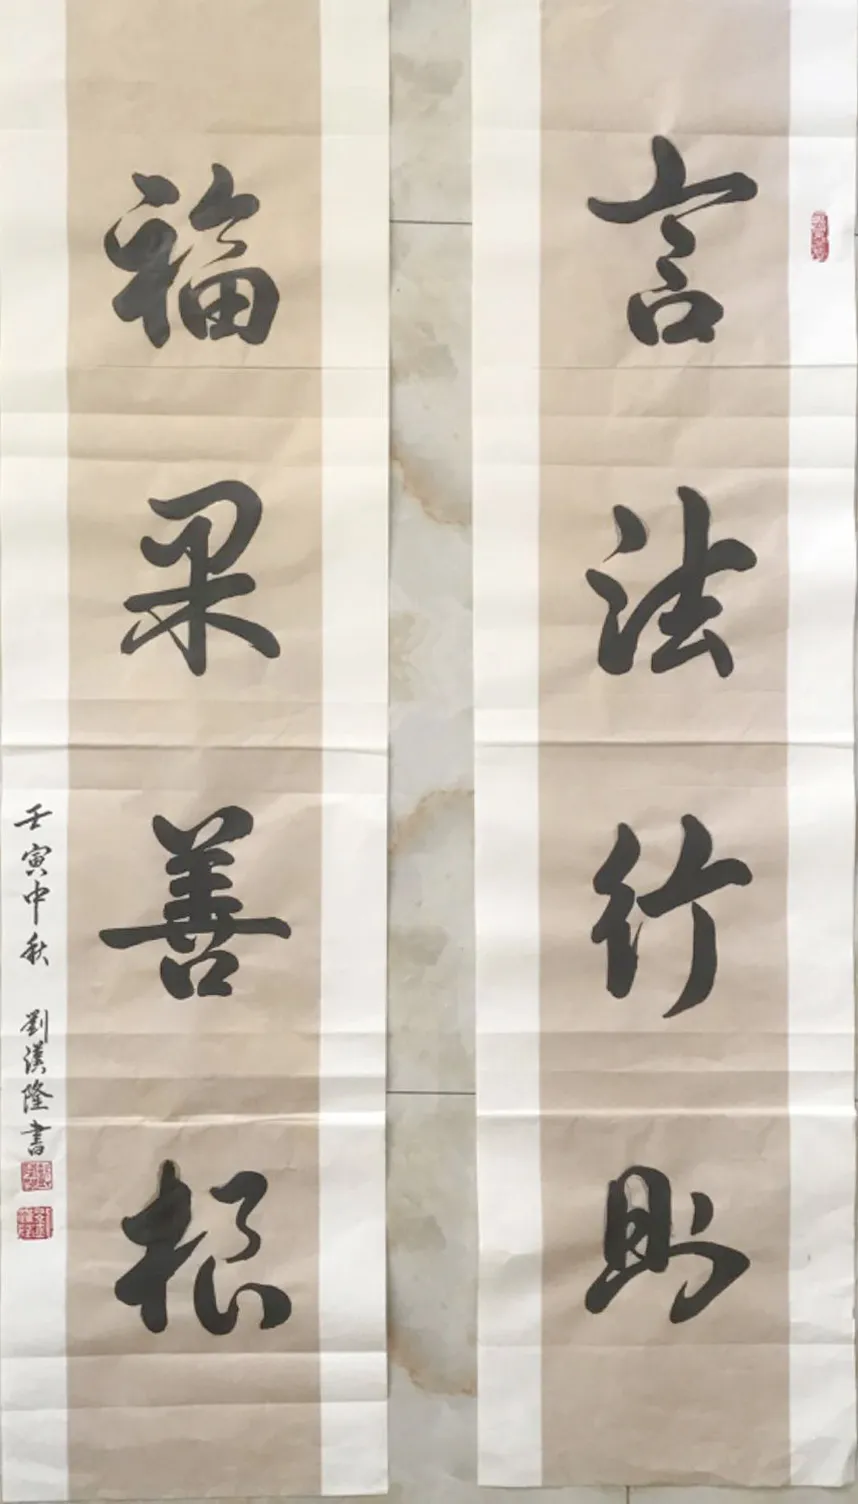 言法行則
福果善根
壬寅中秋 劉漢隆書